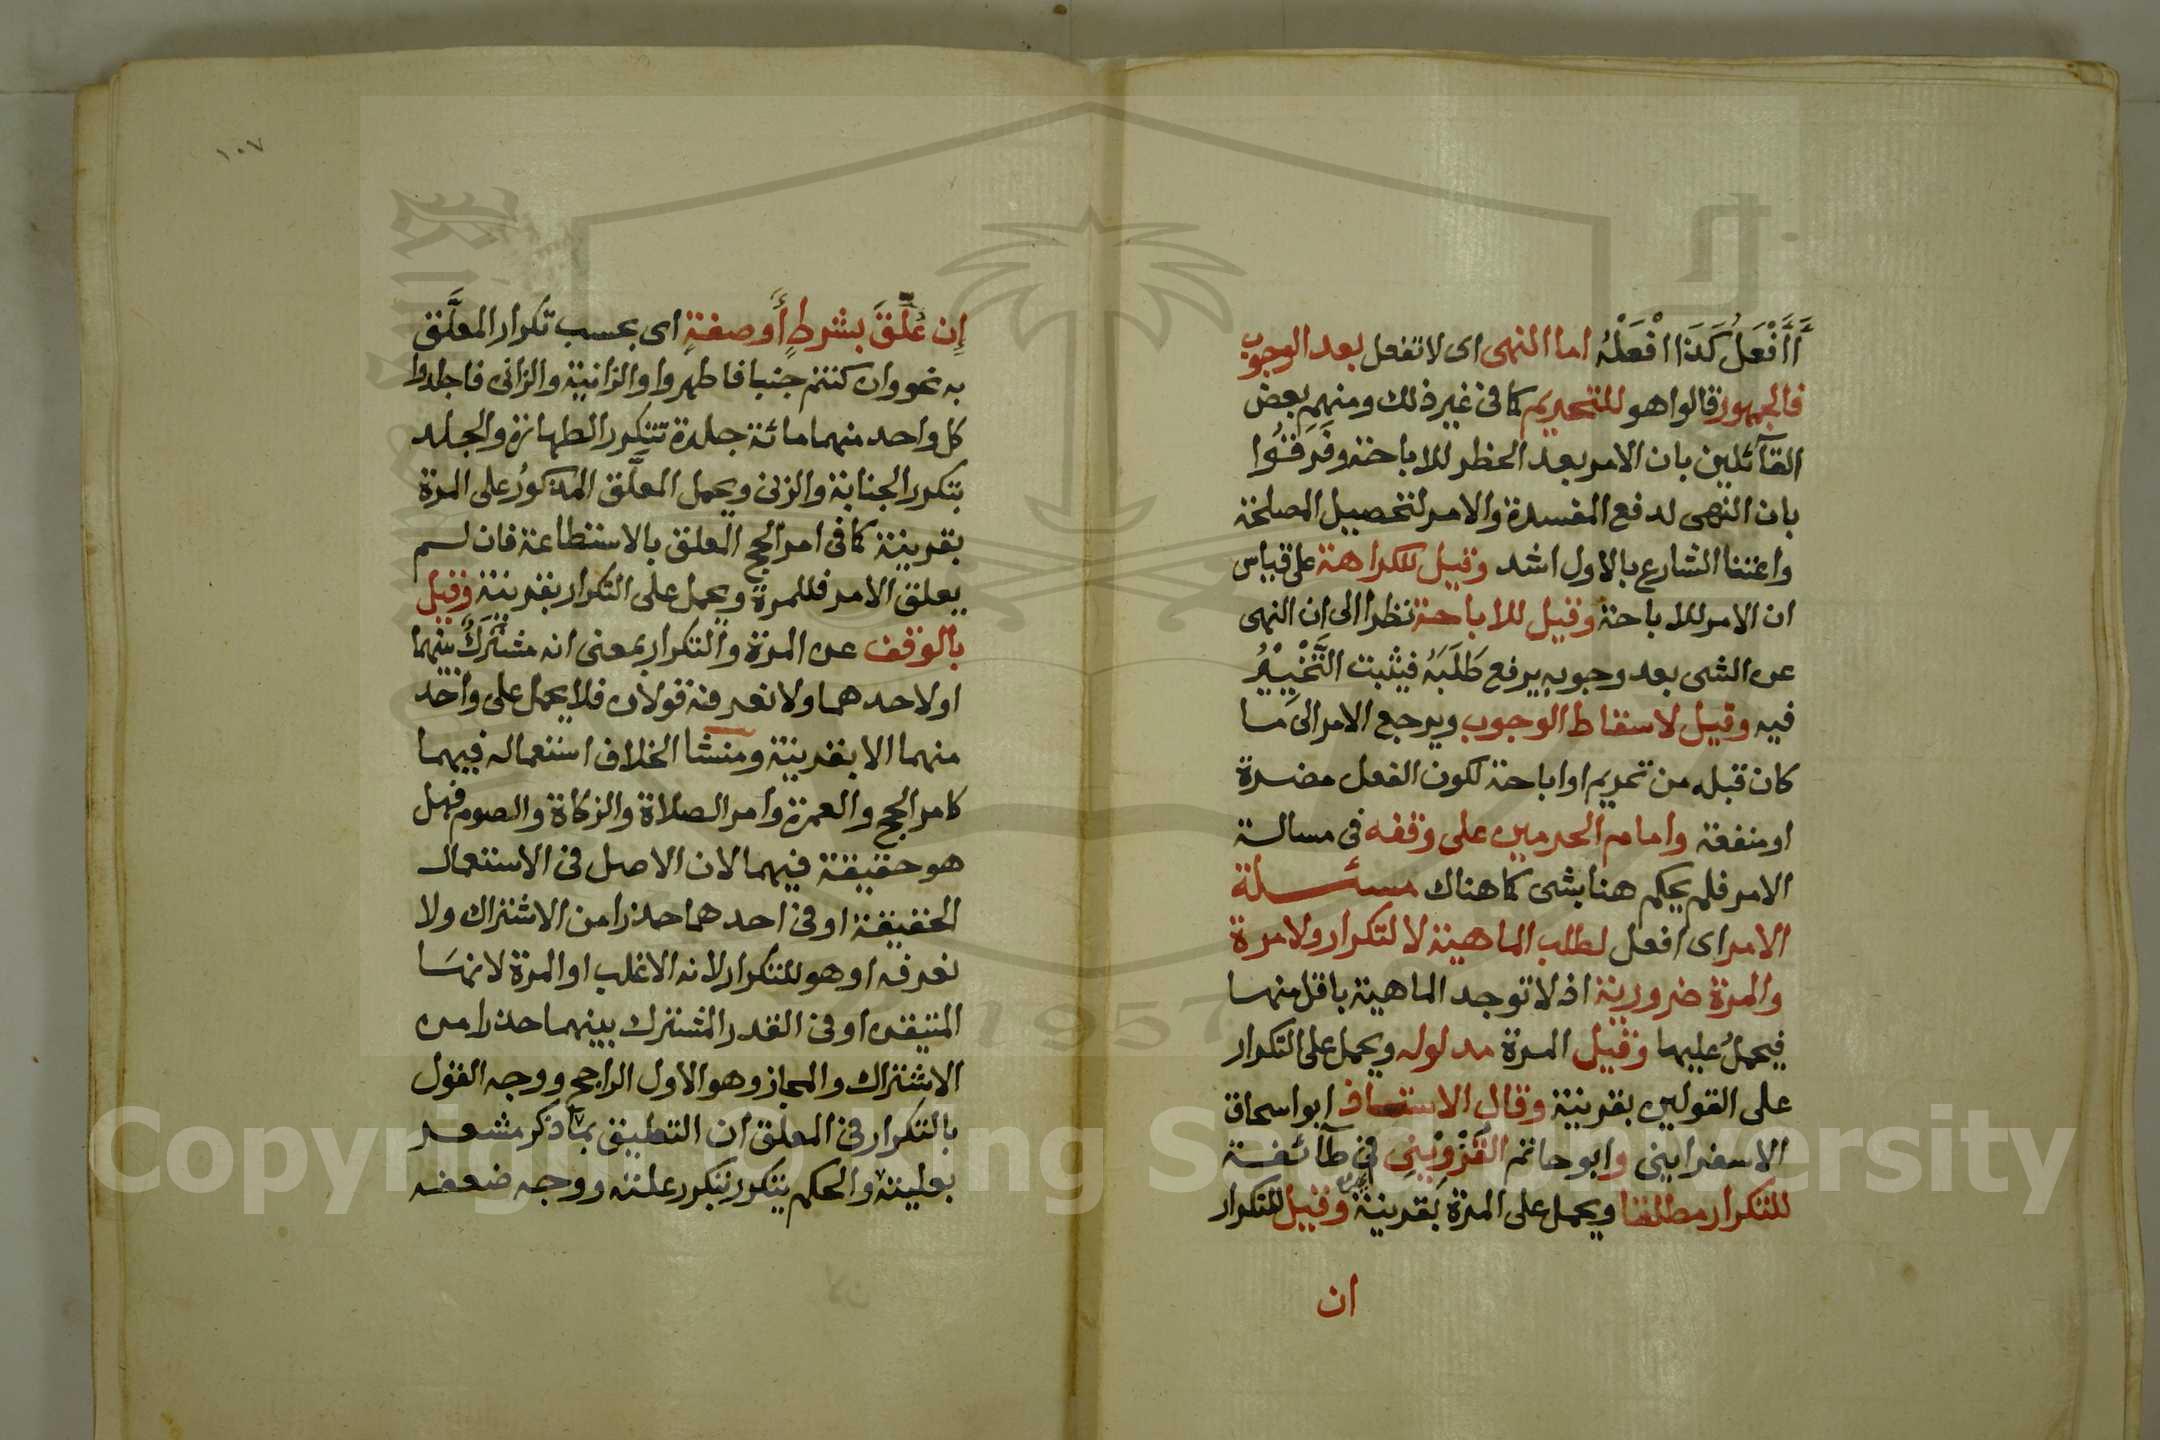 أَأَفْعَلُ كَذَا افْعَلْهُ اما النهى اى لا تفعل بعد الوجوب
فالجمهور قالوا هو للتحريم كما فى غير ذلك ومنهم بعض
القآئلين بان الامر بعد الحظر للاباحة وفَرقُوا
بان النهى لدفع المفسدة والامر لتحصيل المصلحة
واعتنا الشارع بالاول اشد وقيل للكراهة على قياس
ان الامر للاباحة وقيل للاباحة نظرا الى ان النهى
عن الشى بعد وجوبه يرفع طَلَبَهُ فيثبت التَّخْيِيْرُ
فيه وقيل لاسقاط الوجوب ويرجع الامر الى ما
كان قبله من تحريم او اباحة لكون الفعل مضرة
او منفعة وامام الحرمين على وقفه فى مسالة
الامر فلم يحكم هنا بشى كما هناك مسئلة
الامر اى افعل لطلب الماهية لا لتكرار ولا مرة
والمرة ضرورية اذ لا توجد الماهية باقل منها
فيحملُ عليها وقيل المرة مدلوله ويحمل على التكرار
على القولين بقرينة وقال الاستاذ ابو اسحاق
الاسفراينى وابو حاتم القَزْوِيْنِى فى طآئفة
للتكرار مطلقا ويحمل على المرة بقرينة وقيل للتكرار
ان
١٠٧
إِن عُلِّقَ بشرطٍ أَو صفةٍ اى بحسب تكرار المعلَّق
به نحو وان كنتم جنبا فاطهروا والزانية والزانى فاجلدوا
كل واحد منهما مائة جلدة تتكرر الطهارة والجلد
بتكرر الجنابة والزنى ويحمل المعلَّق المذكورُ على المرة
بقرينة كما فى امر الحج المعلق بالاستطاعة فان لم
يعلق الامر فللمرة ويحمل على التكرار بقرينة وقيل
بالوقف عن المرة والتكرار بمعنى انه مشتركٌ بينهما
او لاحدهما ولا نعرفه قولان فلا يحمل على واحد
منهما الا بقرينة ومنشا الخلاف استعماله فيهما
كامر الحج والعمرة وامر الصلاة والزكاة والصوم فهل
هو حقيقة فيهما لان الاصل فى الاستعمال
الحقيقة او فى احدهما حذرا من الاشتراك ولا
نعرفه او هو للتكرار لانه الاغلب او المرة لانهَا
المتيقن او فى القدر المشترك بينهما حذرا من
الاشتراك والمجاز وهو الاول الراجح ووجه القول
بالتكرار فى المعلق ان التعليق بما ذكر مشعر
بعليته والحكم يتكرر بتكرر علته ووجه ضعفه
Copyright © King Saud University
1957